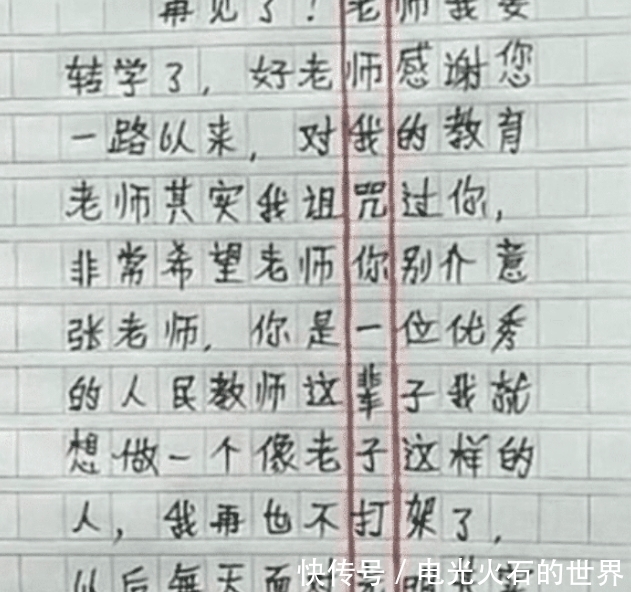 再见了！老师我要
转学了，好老师感谢您
一路以来，对我的教育
老师其实我诅咒过你，
非常希望老师你别介意
张老师，你是一位优秀
的人民教师这辈子我就
想做一个像老子这样的
人，我再也不打架了，
以后每天面对
快传号 / 电光火石的世界